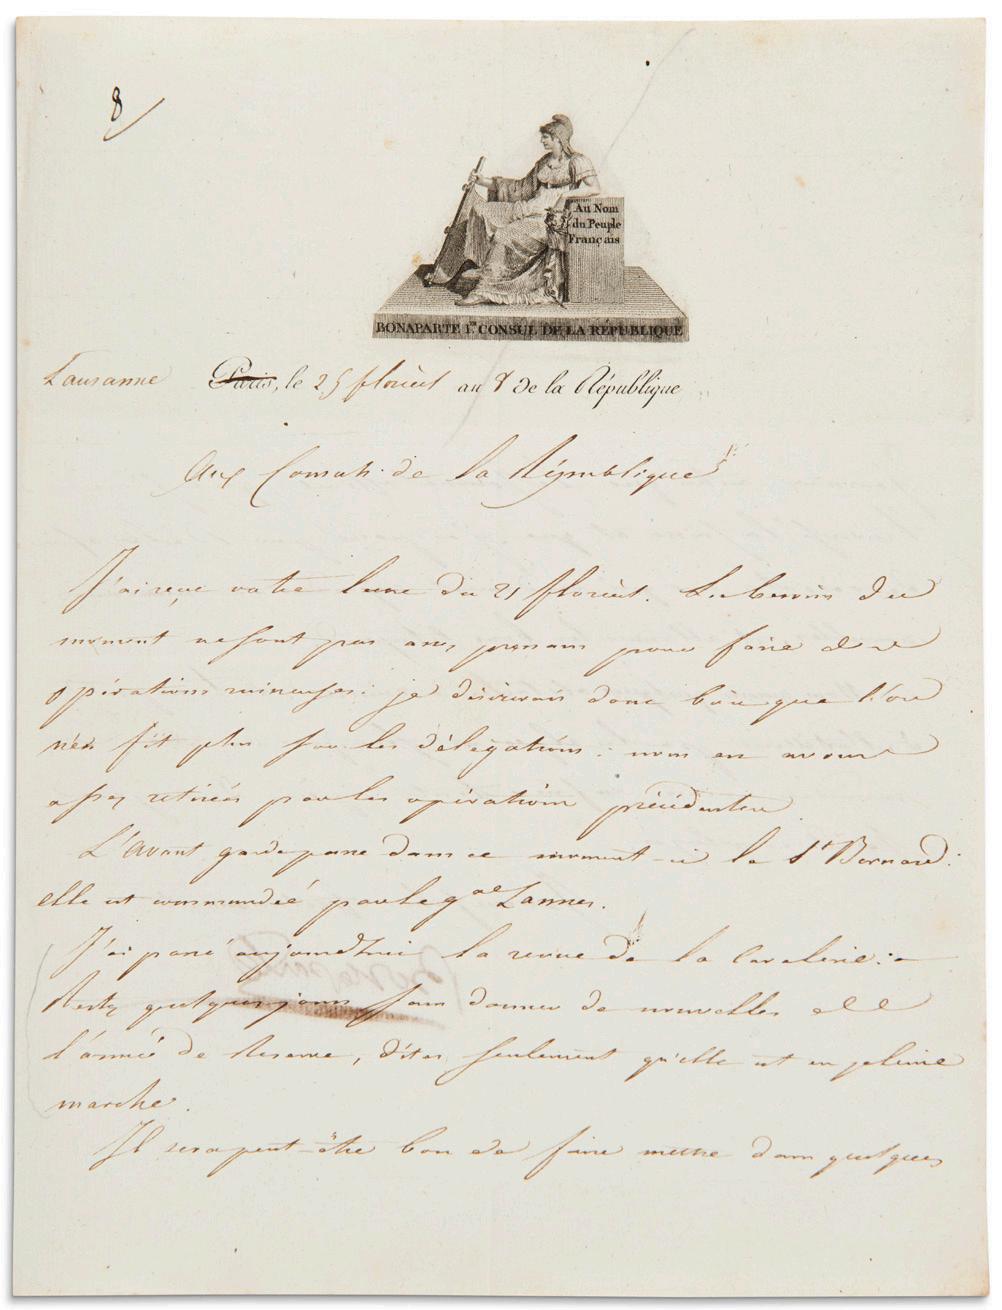 8
Au Nom
du Peuple
Français
BONAPARTE 1er CONSUL DE LA RÉPUBLIQUE
Lausanne Paris, le 25 floréal an 8 de la République
Aux Consuls de la République
J'ai reçu votre lettre du 21 floréal. Les besoins du
moment ne sont pas assez pressans pour faire des
opérations ruineuses: je désirerais donc bien que l'on
n'en fit plus sur les délégations: nous en avons
assez retirées par les opérations précédentes.
L'avant garde passe dans ce moment-ci le St Bernard:
elle est commandée par le gal Lannes.
J'ai passé aujourd'hui la revue de la cavalerie:
Restez quelques jours sans donner de nouvelles de
l'armée de Réserve, dites seulement qu'elle est en pleine
marche.
Il sera peut-être bon de faire mettre dans quelques